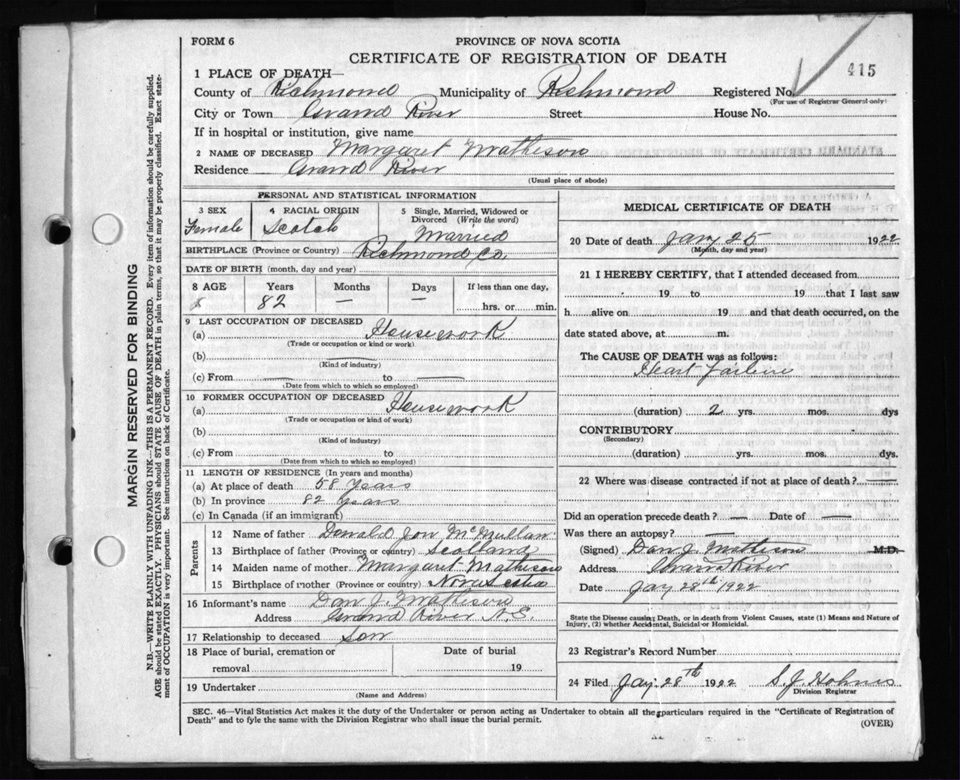 FORM 6
PROVINCE OF NOVA SCOTIA
CERTIFICATE OF REGISTRATION OF DEATH
415
1 PLACE OF DEATH—
County of Richmond Municipality of Richmond Registered No.
(For use of Registrar General only)
City or Town Grand River Street House No.
If in hospital or institution, give name
2 NAME OF DECEASED Margaret Matheson
Residence Grand River
(Usual place of abode)
PERSONAL AND STATISTICAL INFORMATION
3 SEX Female
4 RACIAL ORIGIN Scotch
5 Single, Married, Widowed or Divorced (Write the word) Married
BIRTHPLACE (Province or Country) Richmond Co.
DATE OF BIRTH (month, day and year)
8 AGE Years Months Days If less than one day,
82 — — hrs. or min.
9 LAST OCCUPATION OF DECEASED
(a) Housework
(Trade or occupation or kind or work)
(b)
(Kind of industry)
(c) From — to —
(Date from which to which so employed)
10 FORMER OCCUPATION OF DECEASED
(a) Housework
(Trade or occupation or kind of work)
(b)
(Kind of industry)
(c) From to
(Date from which to which so employed)
11 LENGTH OF RESIDENCE (In years and months)
(a) At place of death 58 Years
(b) In province 82 Years
(c) In Canada (if an immigrant)
Parents
12 Name of father Donald Jon McMullan
13 Birthplace of father (Province or country) Scotland
14 Maiden name of mother Margaret Matheson
15 Birthplace of mother (Province or country) Nova Scotia
16 Informant's name Dan J. Matheson
Address Grand River N.S.
17 Relationship to deceased Son
18 Place of burial, cremation or removal
Date of burial 19
19 Undertaker
(Name and Address)
MEDICAL CERTIFICATE OF DEATH
20 Date of death Jany 25 1922
(Month, day and year)
21 I HEREBY CERTIFY, that I attended deceased from
19 to 19 that I last saw
h alive on 19 and that death occurred, on the
date stated above, at m.
The CAUSE OF DEATH was as follows:
Heart Failure
(duration) 2 yrs. mos. dys
CONTRIBUTORY
(Secondary)
(duration) yrs. mos. dys.
22 Where was disease contracted if not at place of death? —
Did an operation precede death? — Date of —
Was there an autopsy? —
(Signed) Dan J. Matheson M.D.
Address Grand River
Date Jay 28th 1922
State the Disease causing Death, or in death from Violent Causes, state (1) Means and Nature of
Injury, (2) whether Accidental, Suicidal or Homicidal.
23 Registrar's Record Number
24 Filed Jay. 28th 1922 S. J. Holmes
Division Registrar
SEC. 46—Vital Statistics Act makes it the duty of the Undertaker or person acting as Undertaker to obtain all the particulars required in the "Certificate of Registration of
Death" and to fyle the same with the Division Registrar who shall issue the burial permit.
(OVER)
MARGIN RESERVED FOR BINDING
N.B.—WRITE PLAINLY WITH UNFADING INK—THIS IS A PERMANENT RECORD. Every item of information should be carefully supplied.
AGE should be stated EXACTLY. PHYSICIANS should STATE CAUSE OF DEATH in plain terms, so that it may be properly classified. Exact state-
ment of OCCUPATION is very important. See instructions on back of Certificate.